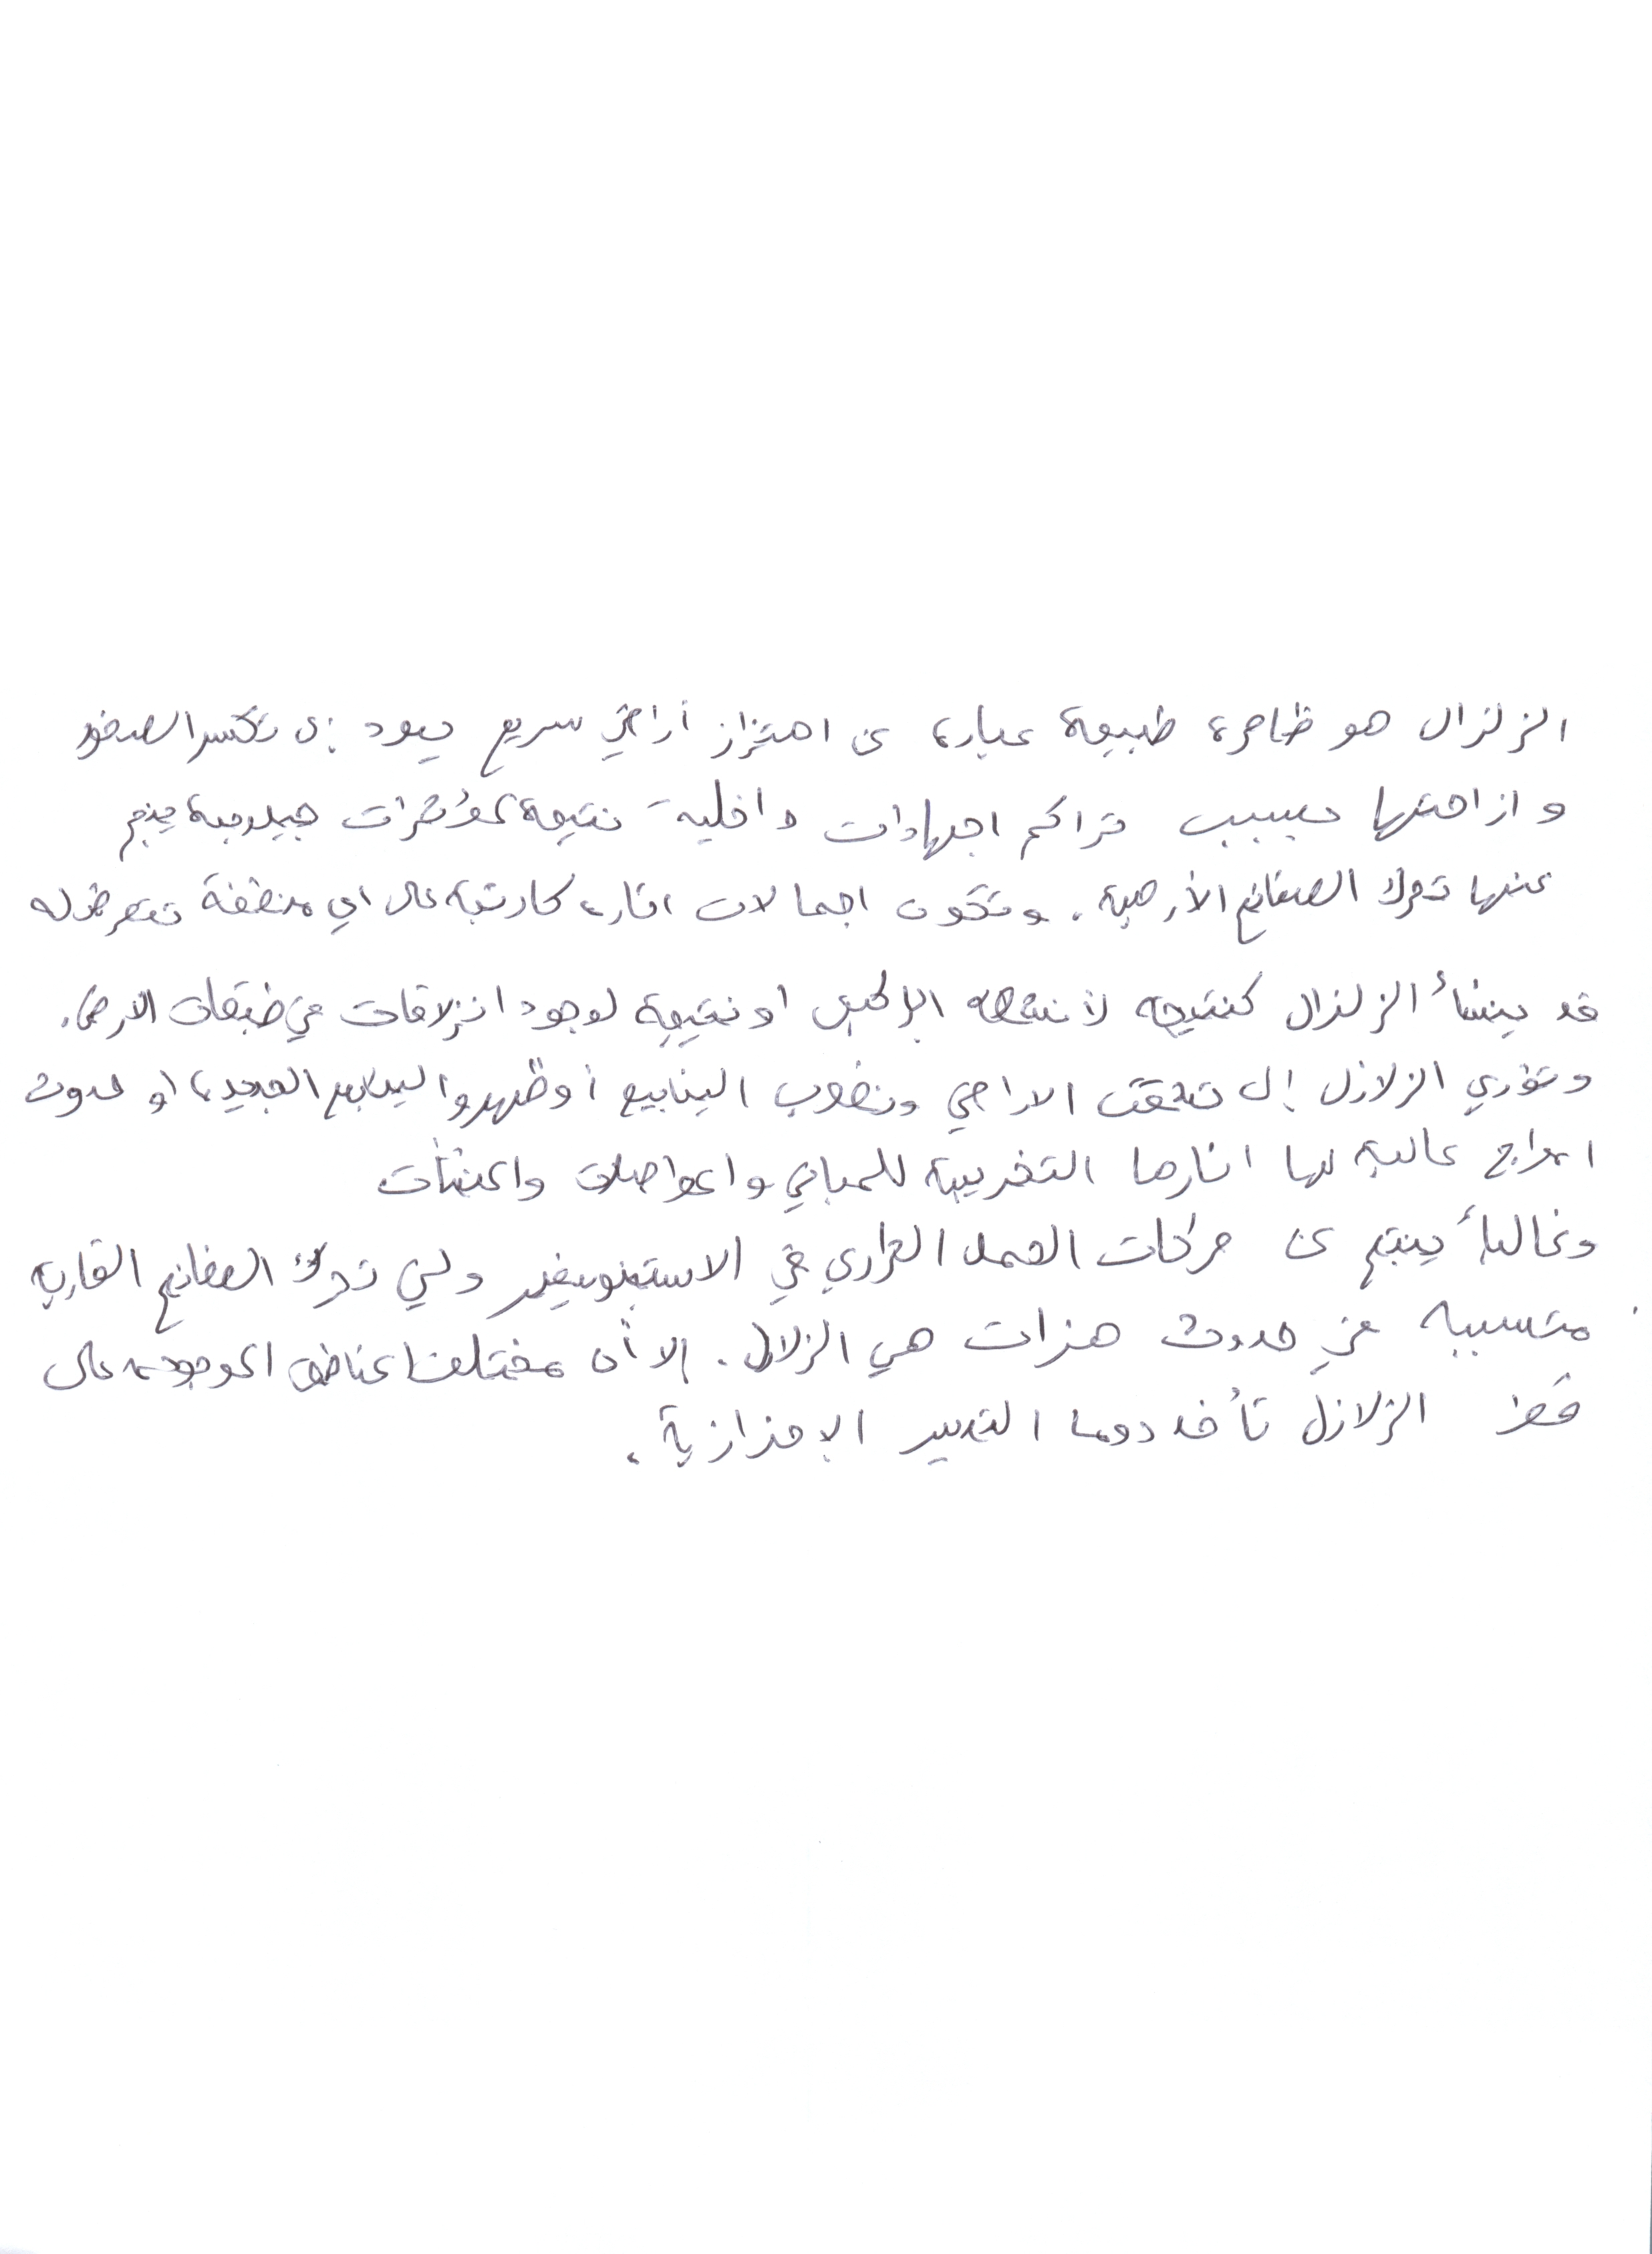 الزلزال هو ظاهرة طبيعة عبارة عن اهتزاز أراضي سريع يعود إلى تكسر الصخور
وازاحتها بسبب تراكم اجهادات داخلية نتيجة لمؤثرات جيلوجية ينجم
عنها تحرك الصفائح الأرضية. وتكون اجمالات اثاره كارثية على اي منطقة تتعرض له
قد ينشأ الزلزال كنتيجه لأنشطه البراكين او نتيجة لوجود انزلاقات في طبقات الارض.
وتؤدي الزلازل إلى تشقق الاراضي ونضوب الينابيع أو ظهور الينابيع الجديدة او حدوث
امواج عالية لها اثارها التخريبية للمباني والمواصلات والمنشأت
وغالبأ ينتج عن حركات الحمل الحراري في الاستينوسفير ولي تحرك الصفائح القارية
متسببه في حدوث هزات هي الزلازل. إلا أن مختلف المناطق الموجودة على
الزلازل تأخد دوما التدبير الإحزازية.